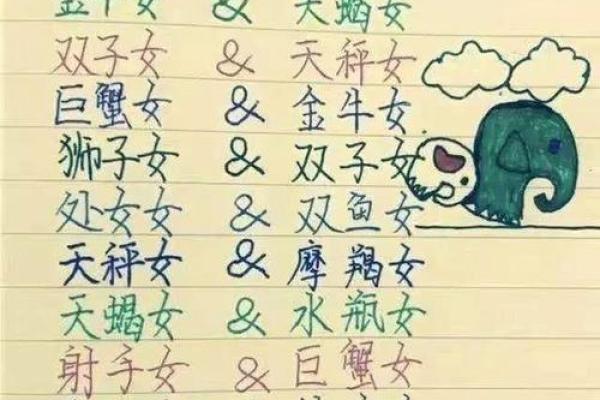 金牛女 & 天蝎女
双子女 & 天秤女
巨蟹女 & 金牛女
狮子女 & 双子女
处女女 & 双鱼女
天秤女 & 摩羯女
天蝎女 & 水瓶女
射手女 & 巨蟹女